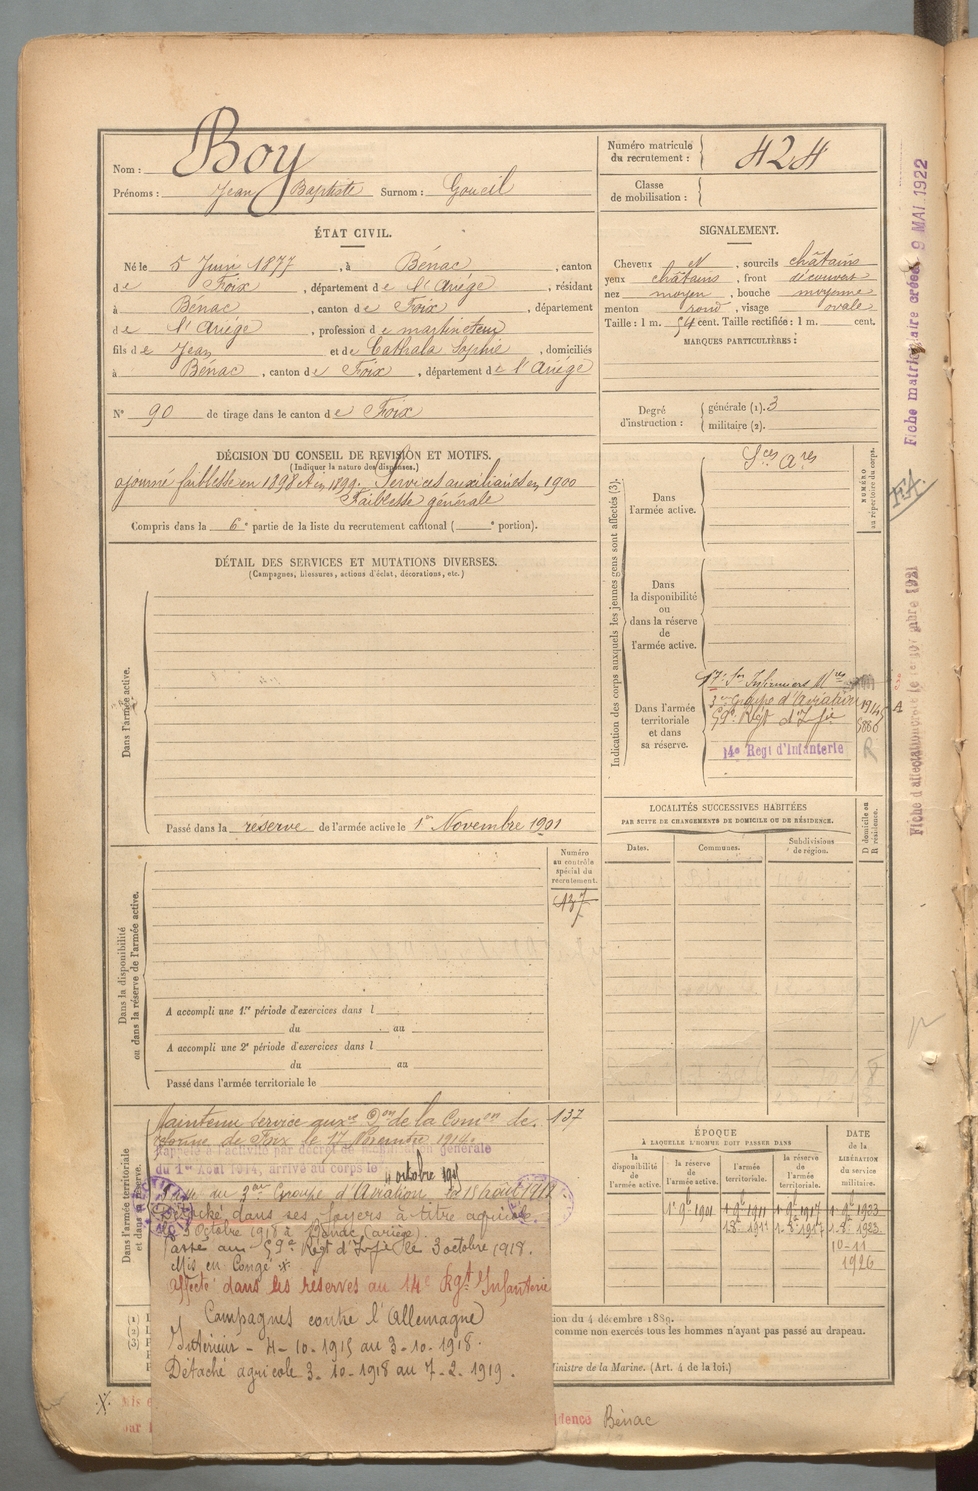 Nom : Boy
Prénoms : Jean Baptiste Surnom : Goucil
Numéro matricule du recrutement : 424
Classe de mobilisation :
ÉTAT CIVIL.
Né le 5 Juin 1877, à Bénac, canton
de Foix, département de l'Ariège, résidant
à Bénac, canton de Foix, département
de l'Ariège, profession de martineteur
fils de Jean et de Cathala Sophie, domiciliés
à Bénac, canton de Foix, département de l'Ariège
N° 90 de tirage dans le canton de Foix
SIGNALEMENT.
Cheveux N, sourcils châtains
yeux châtains, front découvert
nez moyen, bouche moyenne
menton rond, visage ovale
Taille : 1 m. 54 cent. Taille rectifiée : 1 m. cent.
MARQUES PARTICULIÈRES :
Degré d'instruction : générale (1). 3
militaire (2).
DÉCISION DU CONSEIL DE REVISION ET MOTIFS.
(Indiquer la nature des dispenses.)
ajourné faiblesse en 1898 et en 1899. Services auxiliaires en 1900
Faiblesse générale
Compris dans la 6e partie de la liste du recrutement cantonal ( e portion).
DÉTAIL DES SERVICES ET MUTATIONS DIVERSES.
(Campagnes, blessures, actions d'éclat, décorations, etc.)
Dans l'armée active.
Passé dans la réserve de l'armée active le 1er Novembre 1901
Indication des corps auxquels les jeunes gens sont affectés (3).
NUMÉRO au répertoire du corps.
Sces Ares
Dans l'armée active.
Dans la disponibilité ou dans la réserve de l'armée active.
Dans l'armée territoriale et dans sa réserve.
17e Son Infirmiers Mres
3e Groupe d'Aviation
59e Régt d'Ifie
14e Regt d'Infanterie
R
A
LOCALITÉS SUCCESSIVES HABITÉES
PAR SUITE DE CHANGEMENTS DE DOMICILE OU DE RÉSIDENCE.
Dates.
Communes.
Subdivisions de région.
D domicile ou R résidence.
Numéro au contrôle spécial du recrutement.
137
Dans la disponibilité ou dans la réserve de l'armée active.
A accompli une 1re période d'exercices dans l
du au
A accompli une 2e période d'exercices dans l
du au
Passé dans l'armée territoriale le
Dans l'armée territoriale et dans sa réserve.
Maintenu service auxre Don de la Comon de 137
réforme de Foix le 17 Novembre 1914.
Rappelé à l'activité par décret de mobilisation générale
du 1er Août 1914, arrivé au corps le 4 octobre 1915
Passé au 3e Groupe d'Aviation le 18 août 1917
Détaché dans ses foyers à titre agricole
3 Octobre 1918 à Bénac (ariège).
Passé au 59e Régt d'Ifie le 3 octobre 1918.
Mis en Congé X
affecté dans les réserves au 14e Rgt d'Infanterie
Campagnes contre l'Allemagne
Intérieur - 4-10-1915 au 3-10-1918.
Détaché agricole 3-10-1918 au 7-2-1919.
ÉPOQUE
À LAQUELLE L'HOMME DOIT PASSER DANS
la disponibilité de l'armée active.
la réserve de l'armée active.
l'armée territoriale.
la réserve de l'armée territoriale.
DATE de la LIBÉRATION du service militaire.
1er 9bre 1901
1er 9bre 1911
1er 9bre 1917
10-11
1926
ion du 4 décembre 1889.
comme non exercés tous les hommes n'ayant pas passé au drapeau.
Ministre de la Marine. (Art. 4 de la loi.)
X
dence Bénac
Fiche matriculaire créée 9 MAI 1922
Fiche d'affectation créée le